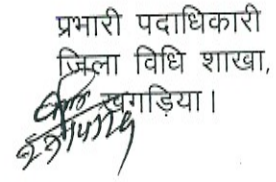 प्रभारी पदाधिकारी
ज़िला विधि शाखा,
खगड़िया।